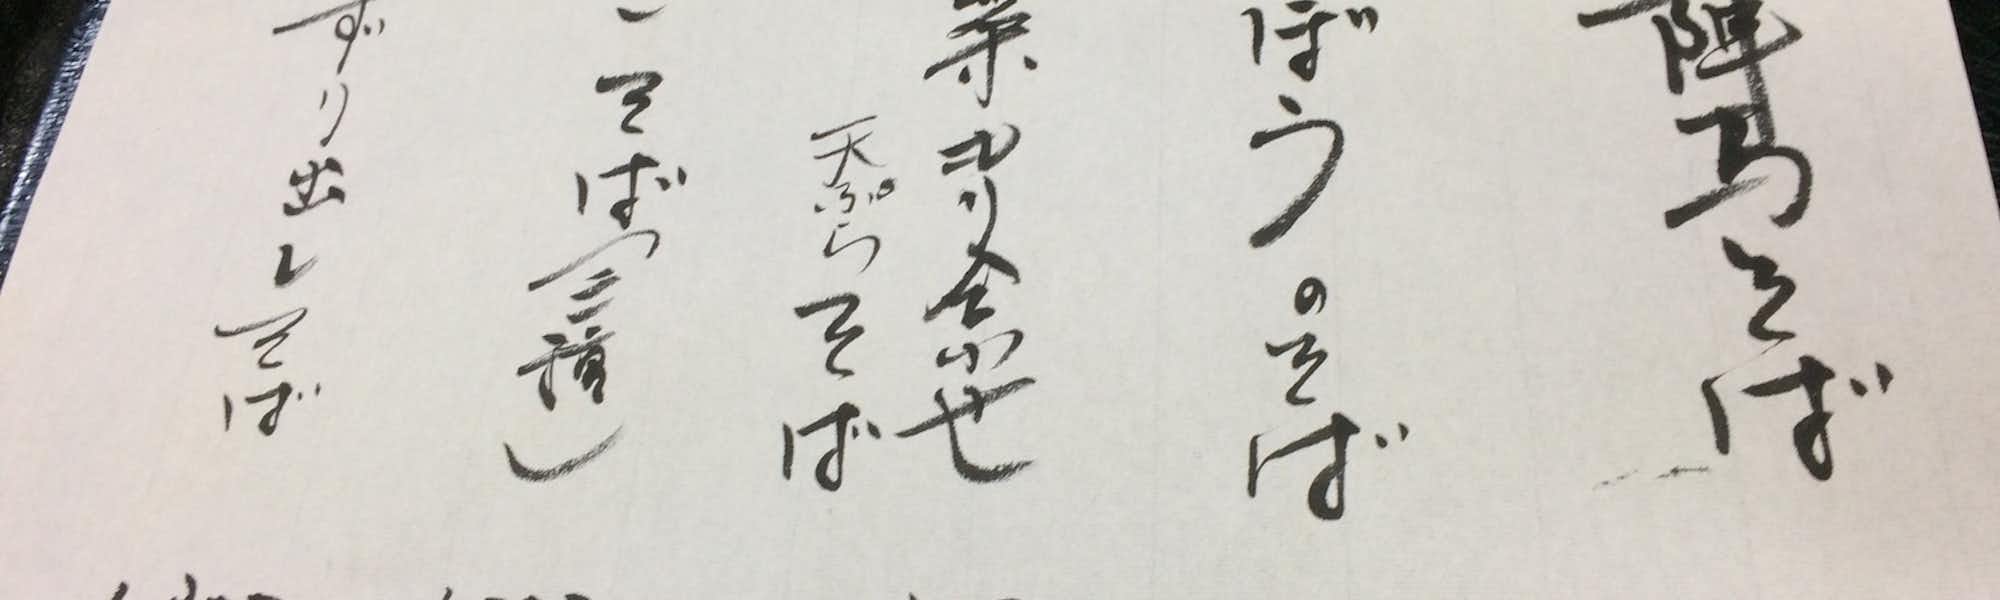 陣馬そば
ぼうのそば
菜オリ合わせ
天ぷらそば
こそば(三種)
ずり出しそば